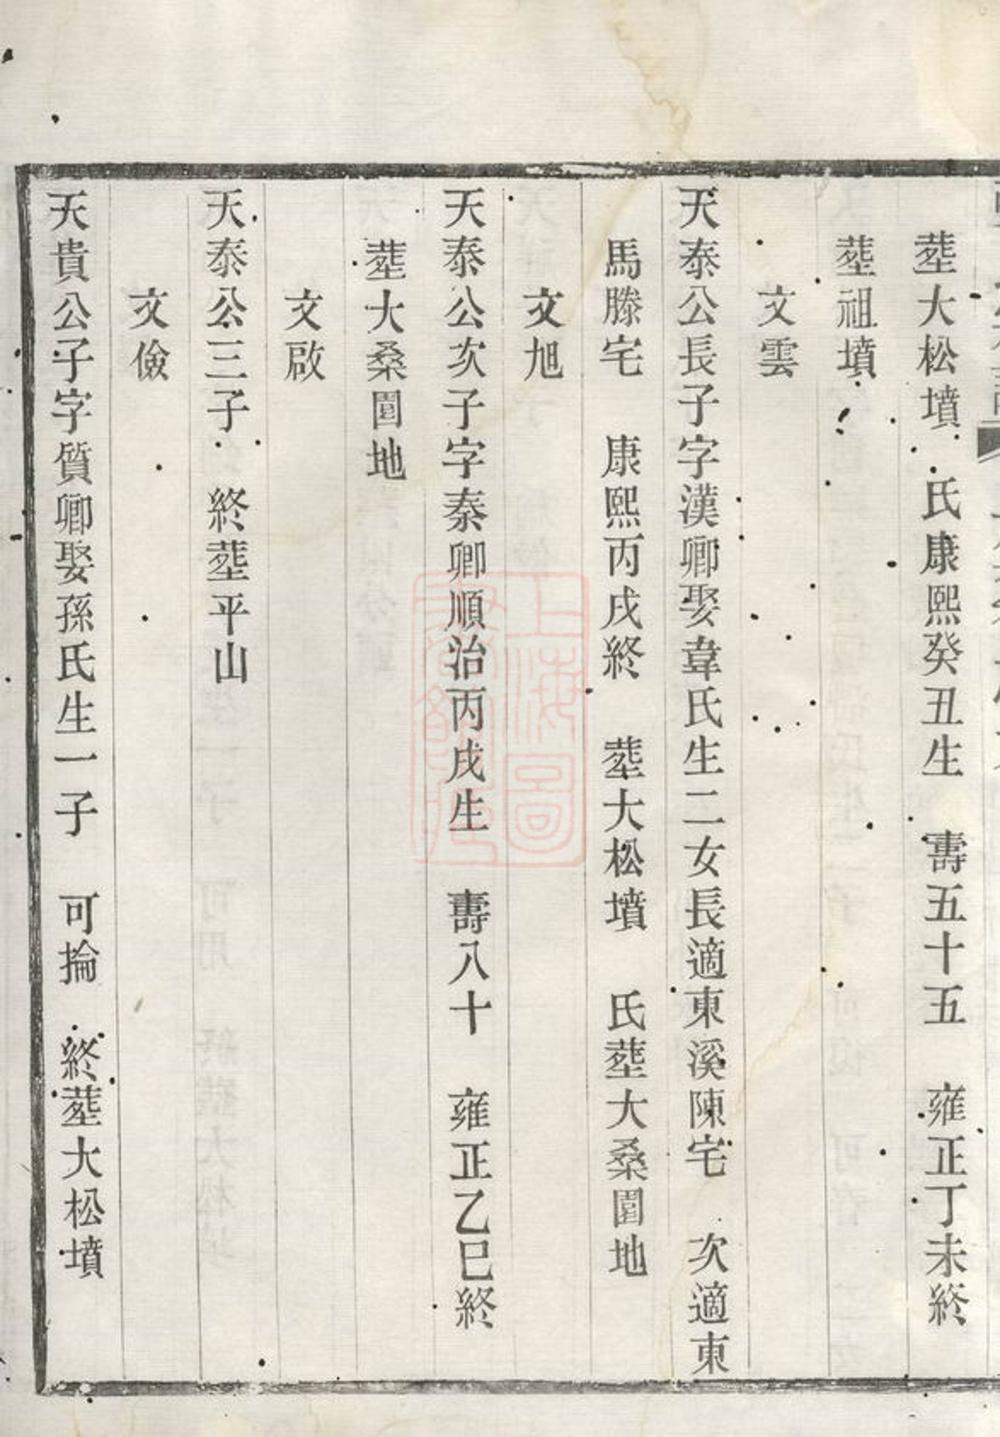 塟大松墳　氏康熙癸丑生　壽五十五　雍正丁未終
塟祖墳
文雲
天泰公長子字漢卿娶韋氏生二女長適東溪陳宅　次適東
馬滕宅　康熙丙戌終　塟大松墳　氏塟大桑園地
文旭
天泰公次子字秦卿順治丙戌生　壽八十　雍正乙巳終
塟大桑園地
文啟
天泰公三子　終塟平山
文儉
天貴公子字質卿娶孫氏生一子　可掄　終塟大松墳
上海圖